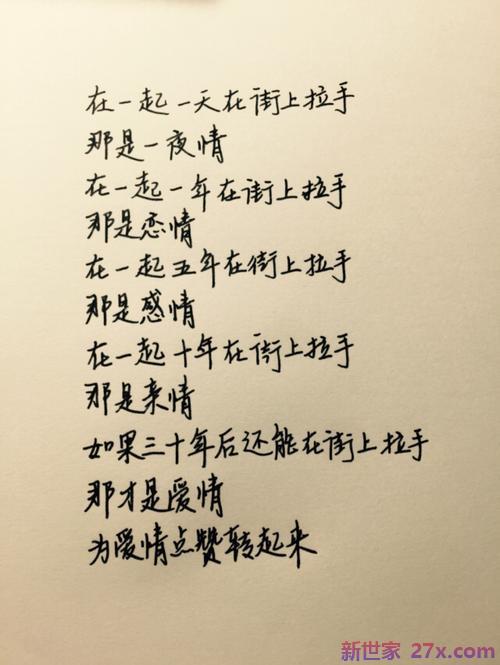 在一起一天在街上拉手
那是一夜情
在一起一年在街上拉手
那是恋情
在一起五年在街上拉手
那是感情
在一起十年在街上拉手
那是亲情
如果三十年后还能在街上拉手
那才是爱情
为爱情点赞转起来
新世家 27x.com